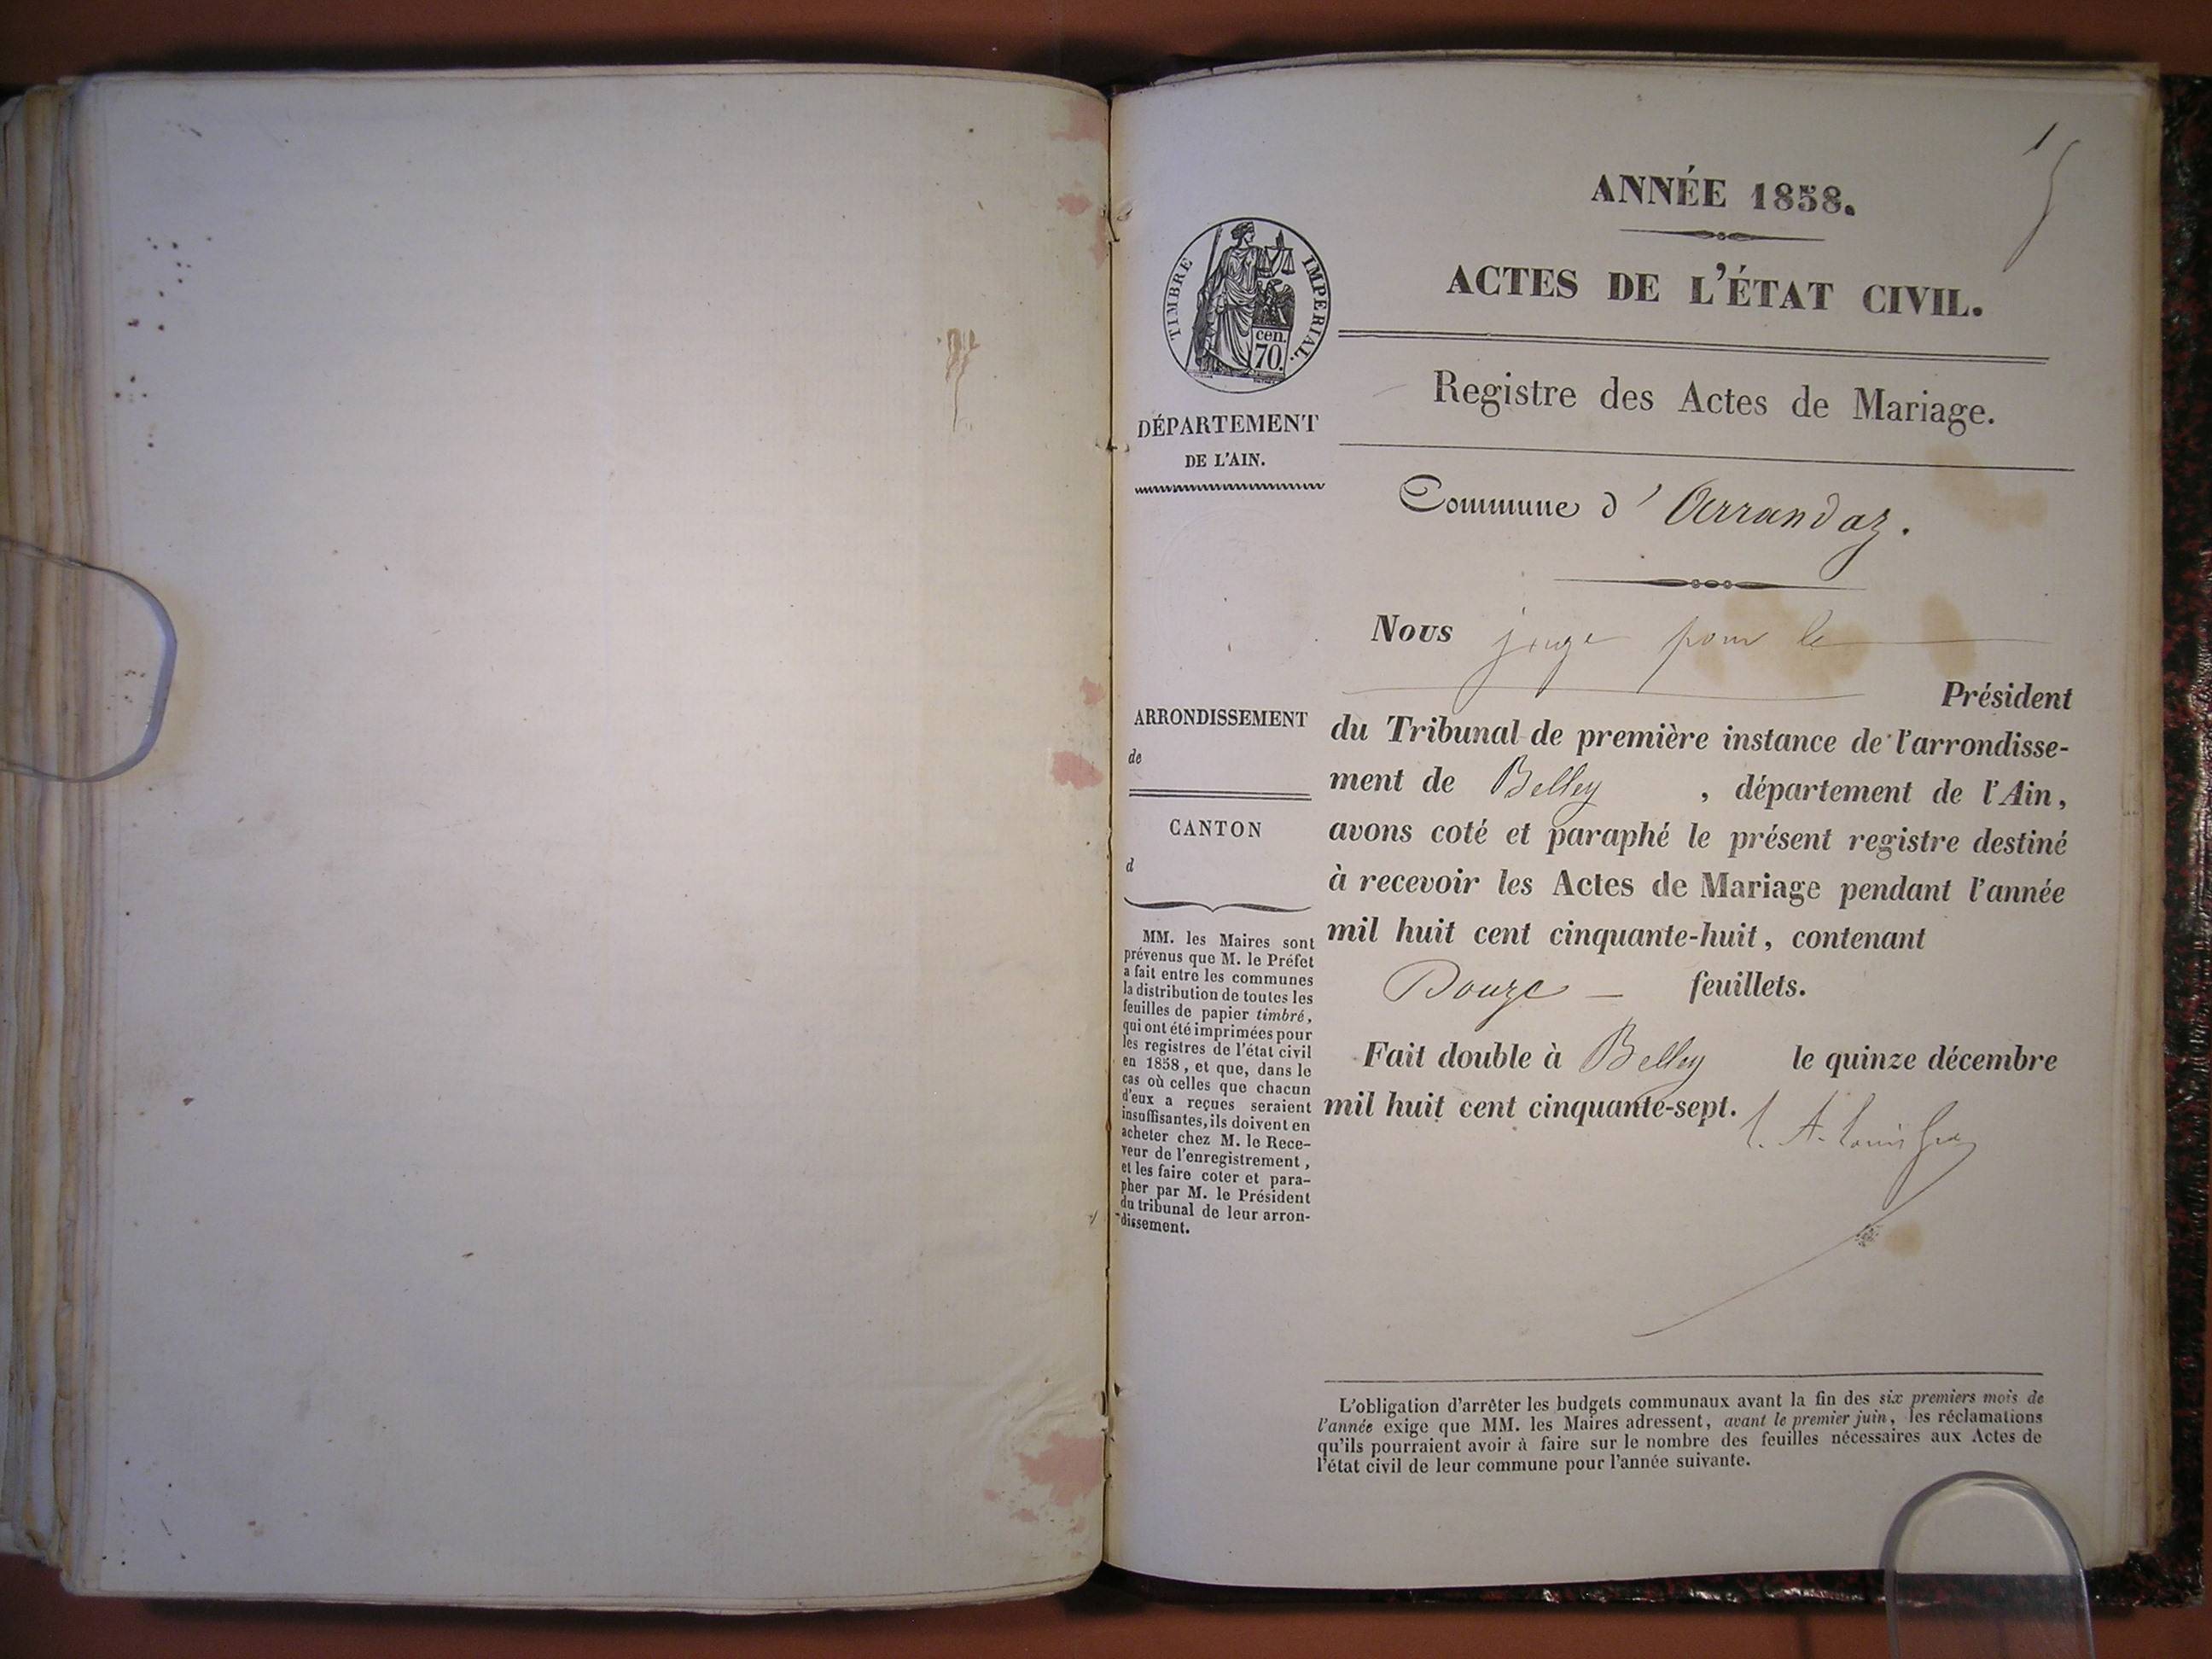 1
ANNÉE 1858.
ACTES DE L'ÉTAT CIVIL.
TIMBRE IMPERIAL.
cen.
70.
Registre des Actes de Mariage.
DÉPARTEMENT
DE L'AIN.
Commune d'Arrandaz.
Nous juge pour le
Président
du Tribunal de première instance de l'arrondisse-
ment de Belley , département de l'Ain,
avons coté et paraphé le présent registre destiné
à recevoir les Actes de Mariage pendant l'année
mil huit cent cinquante-huit, contenant
Douze — feuillets.
Fait double à Belley le quinze décembre
mil huit cent cinquante-sept.
ARRONDISSEMENT
de
CANTON
d
MM. les Maires sont
prévenus que M. le Préfet
a fait entre les communes
la distribution de toutes les
feuilles de papier timbré,
qui ont été imprimées pour
les registres de l'état civil
en 1858, et que, dans le
cas où celles que chacun
d'eux a reçues seraient
insuffisantes, ils doivent en
acheter chez M. le Rece-
veur de l'enregistrement,
et les faire coter et para-
pher par M. le Président
du tribunal de leur arron-
dissement.
L'obligation d'arrêter les budgets communaux avant la fin des six premiers mois de
l'année exige que MM. les Maires adressent, avant le premier juin, les réclamations
qu'ils pourraient avoir à faire sur le nombre des feuilles nécessaires aux Actes de
l'état civil de leur commune pour l'année suivante.